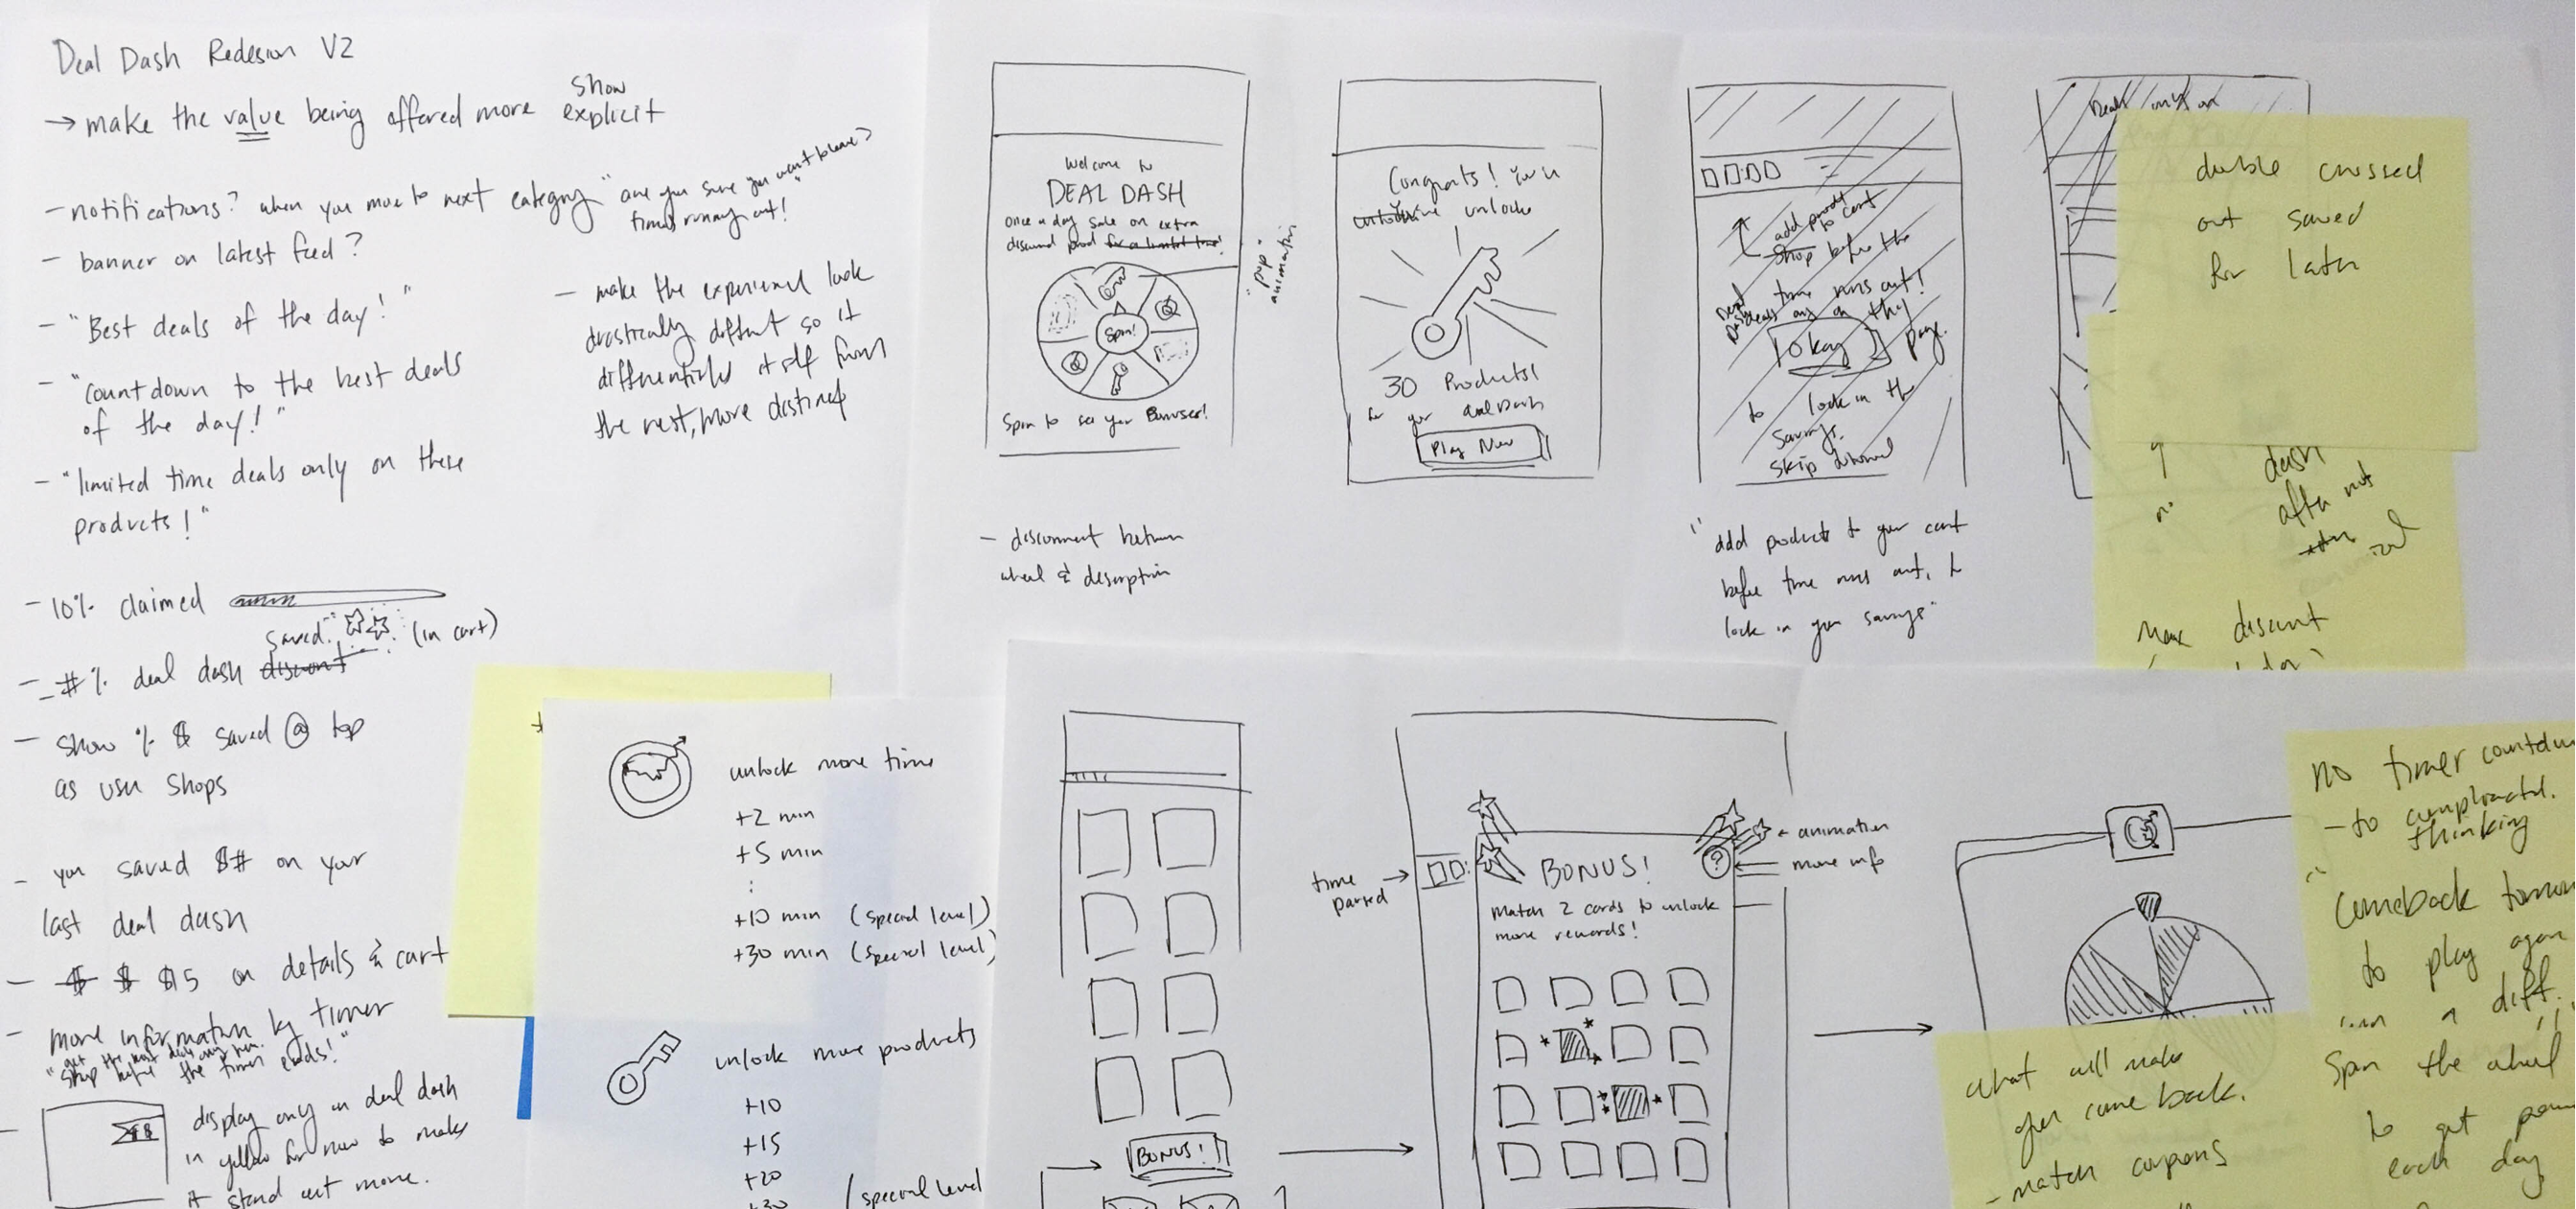 Deal Dash Redesign V2
show
→ make the value being offered more explicit
- notifications? when you move to next category "are you sure you want to leave?
times running out!"
- banner on latest feed?
- "Best deals of the day!"
- "countdown to the best deals
of the day!"
- "limited time deals only on these
products!"
- make the experience look
drastically different so it
differentiates itself from
the rest, more distinct
- 10% claimed
saved (in cart)
- #% deal dash discount
- show % $ saved @ top
as user shops
- you saved $# on your
last deal dash
- $ $ $15 on details & cart
- more information by timer
the timer ends!"
- display only in deal dash
in yellow for now to make
it stand out more.
Welcome to
DEAL DASH
once a day sale on extra
discount prod for a limited time!
Spin!
Spin to see your Bonuses!
"pop"
animation
- disconnect between
wheel & description
Congrats! You
unlock
30 Products!
for your deal dash
Play Now
add prod to cart
shop before the
time runs out!
Okay
page.
to lock in the
savings.
skip tutorial
"add products to your cart
before time runs out, to
lock in your savings"
Deals only on
double crossed
out saved
for later
dash
after not
Max discount
unlock more time
+2 min
+5 min
:
+10 min (special level)
+30 min (special level)
unlock more products
+10
+15
+20
+30 (special level
BONUS!
time
paused →
BONUS!
?
← animation
more info
match 2 cards to unlock
more rewards!
no timer countdown
- to complicated.
thinking
"Comeback tomorrow
to play again
a diff.
Spin the wheel
to get
each day
what will make
user come back.
- match coupons